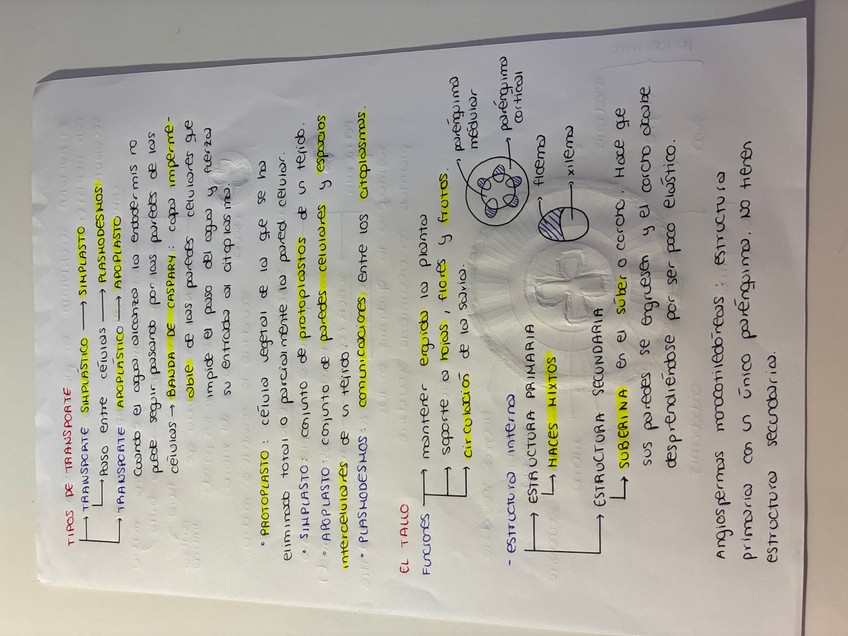 TIPOS DE TRANSPORTE
TRANSPORTE SIMPLÁSTICO → SIMPLASTO
Paso entre células → PLASMODESMOS
TRANSPORTE APOPLÁSTICO → APOPLASTO
Cuando el agua alcanza la endodermis no
puede seguir pasando por las paredes de las
células → BANDA DE CASPARY: capa imperme-
able de las paredes celulares que
impide el paso del agua y fuerza
su entrada al citoplasma.
• PROTOPLASTO: célula vegetal de la que se ha
eliminado total o parcialmente la pared celular.
• SIMPLASTO: conjunto de protoplastos de un tejido.
• APOPLASTO: conjunto de paredes celulares y espacios
intercelulares de un tejido.
• PLASMODESMOS: comunicaciones entre los citoplasmas.
EL TALLO
Funciones → mantener erguida la planta
soporte a hojas, flores y frutos.
circulación de la savia.
- estructura interna
ESTRUCTURA PRIMARIA
HACES MIXTOS
parénquima
medular
parénquima
cortical
floema
xilema
ESTRUCTURA SECUNDARIA
SUBERINA en el súber o corcho. Hace que
sus paredes se engruesen y el corcho acabe
desprendiéndose por ser poco elástico.
Angiospermas monocotiledóneas: estructura
primaria con un único parénquima. No tienen
estructura secundaria.